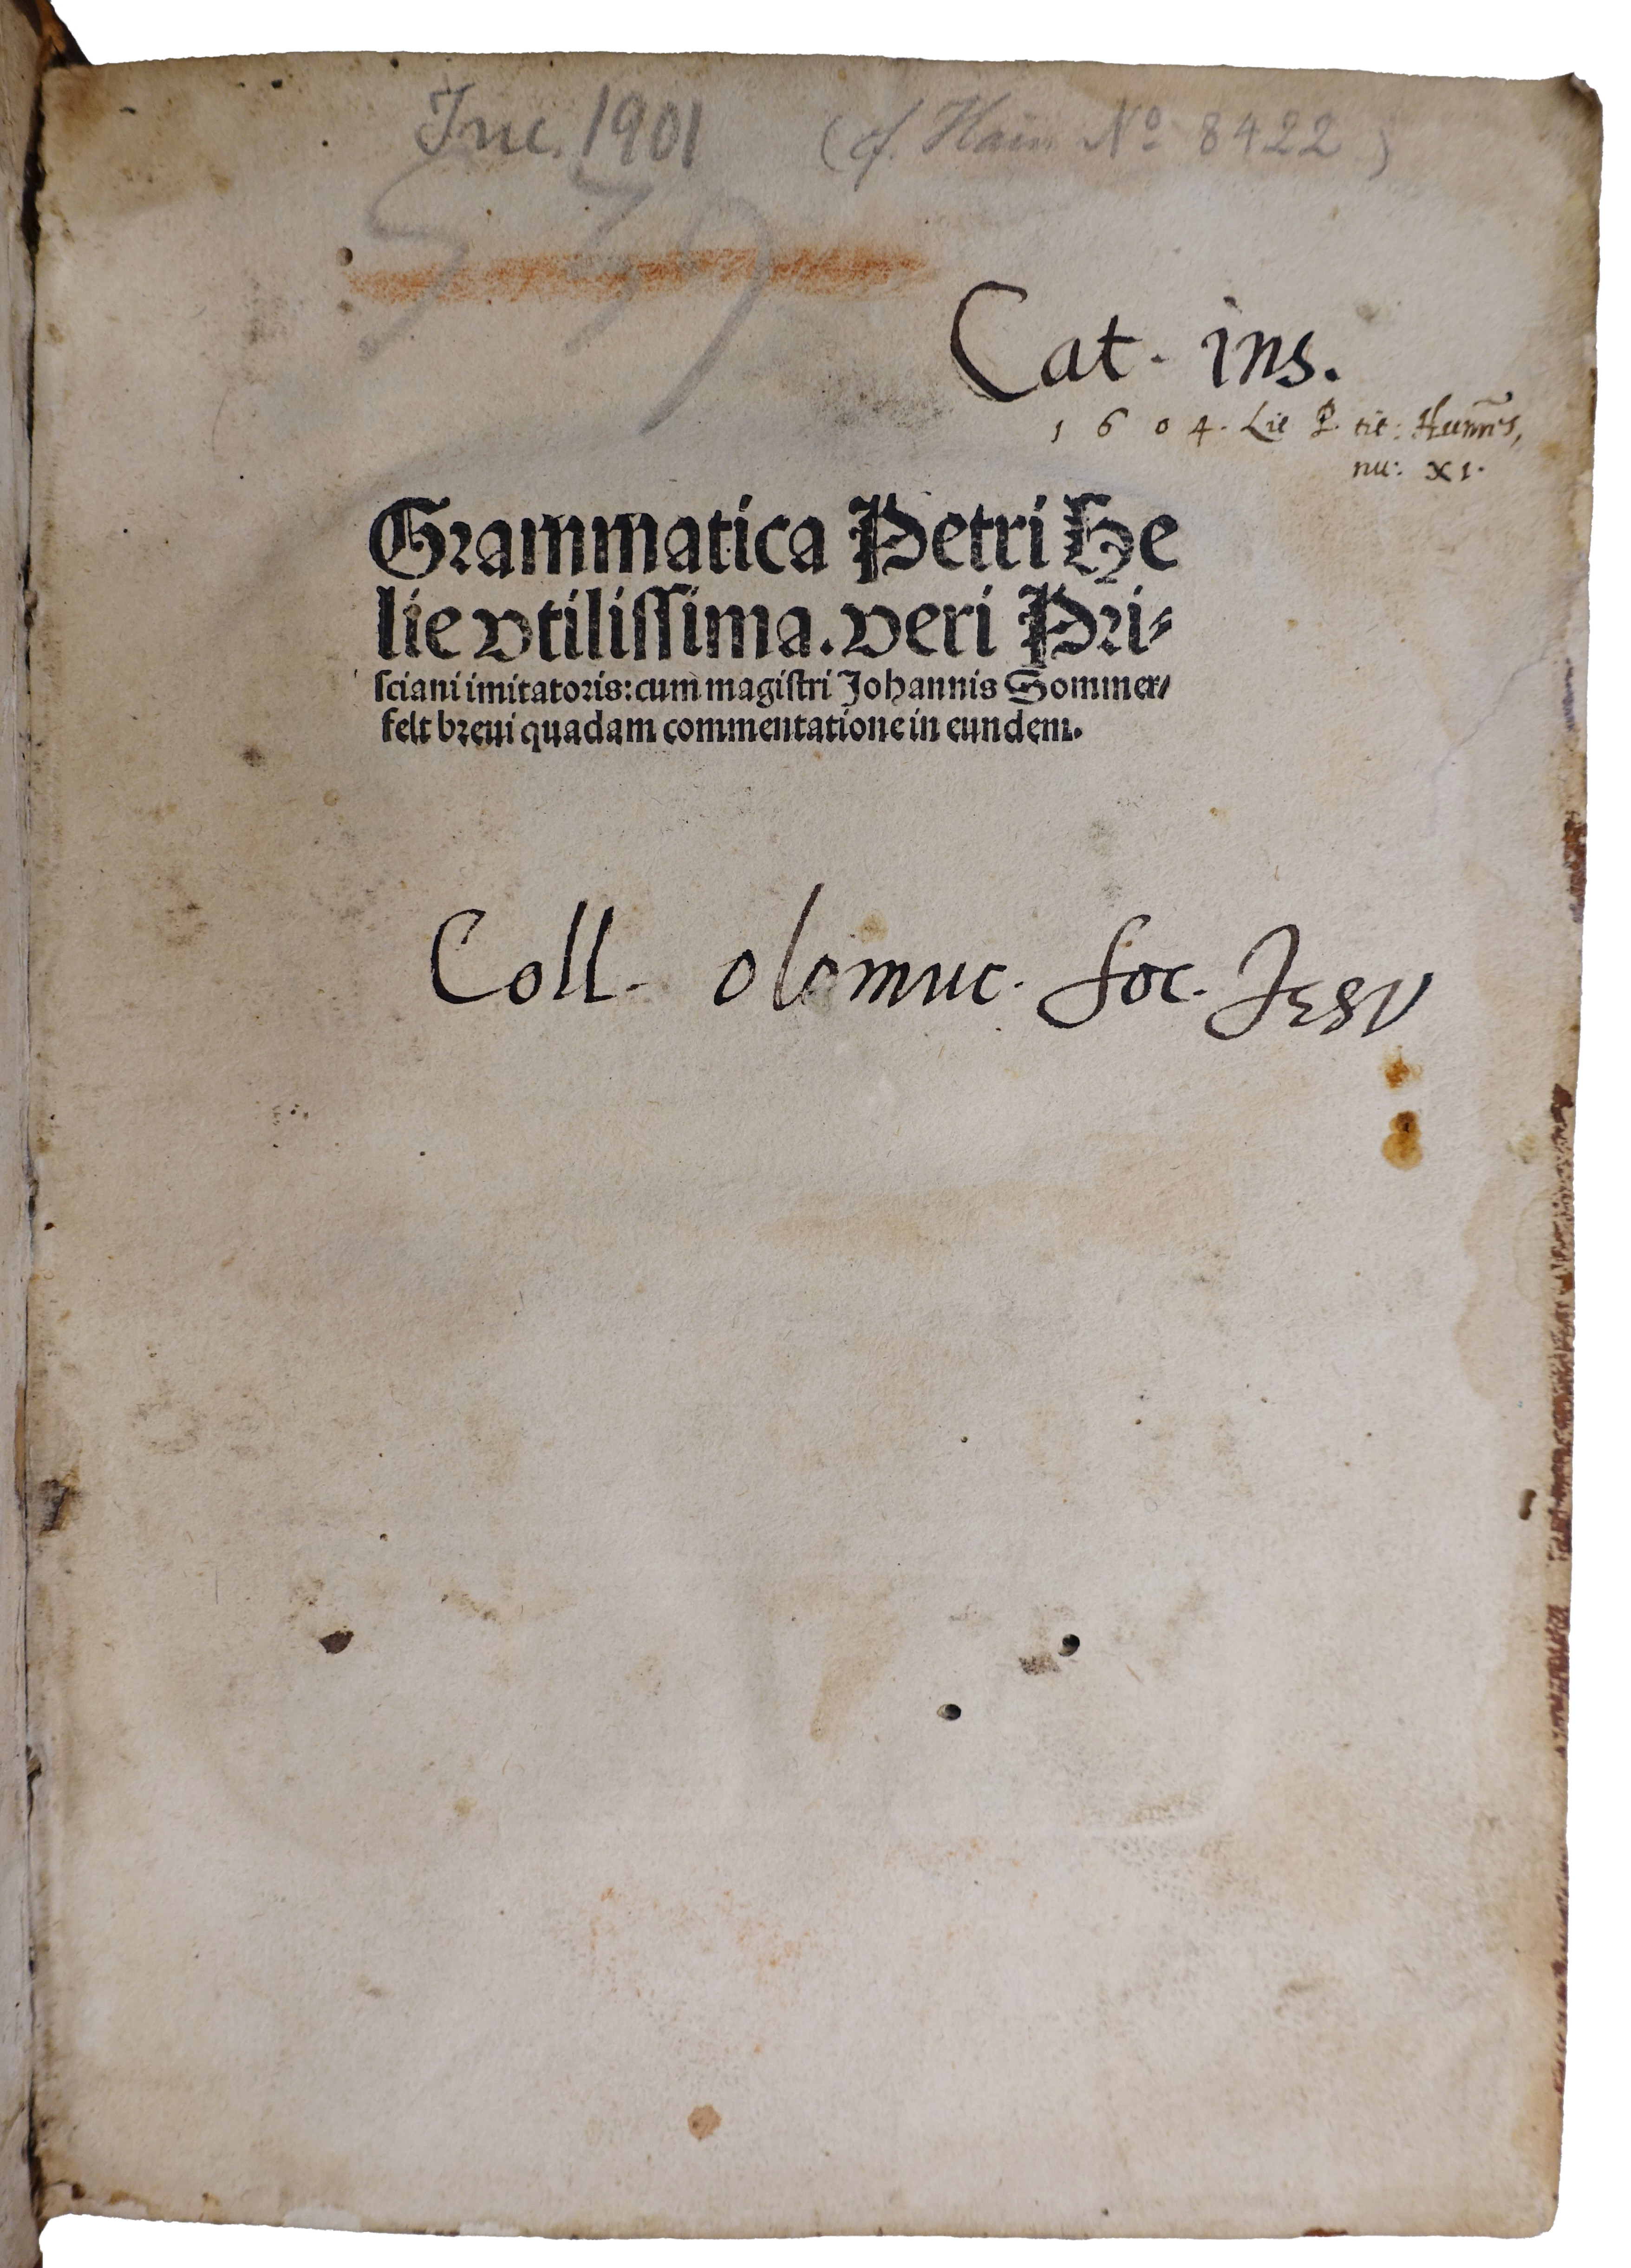 Inc. 1901 (cf. Hain No 8422)
Cat. ins.
1604. Lit P tit: Human̄s,
nu: XI.
Grammatica Petri He
lie vtiliſſima. veri Pri-
ſciani imitatoris: cum magiſtri Johannis Sommer/
felt breui quadam commentatione in eundem.
Coll. olomuc. Soc. JESV